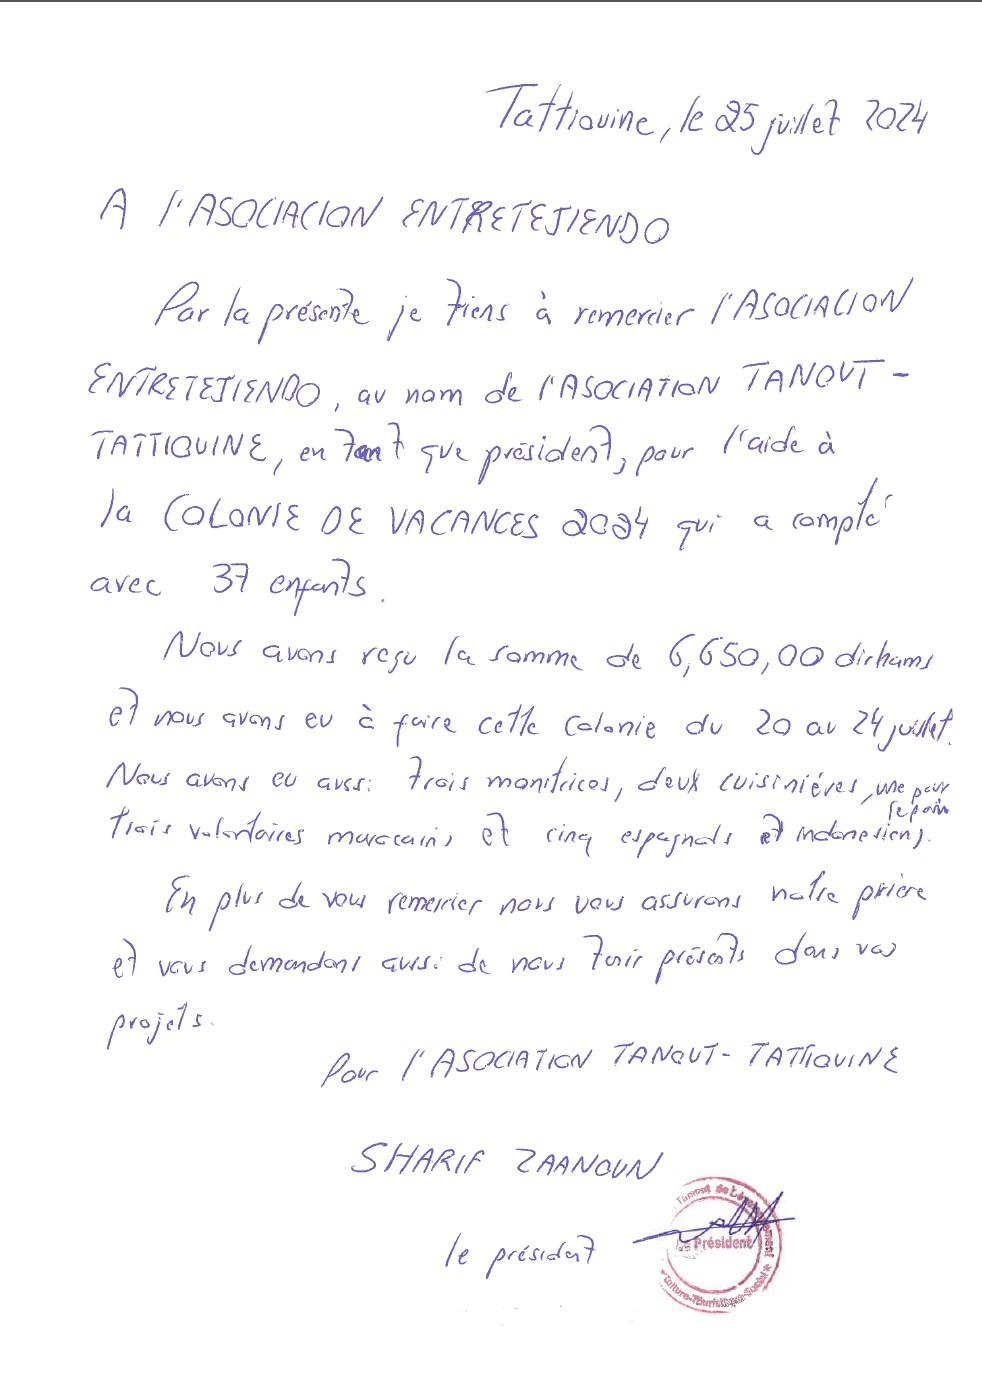 Tattiouine, le 25 juillet 2024
A l'ASOCIACION ENTRETEJIENDO
Par la présente je tiens à remercier l'ASOCIACION
ENTRETEJIENDO, au nom de l'ASOCIATION TANOUT-
TATTIOUINE, en tant que président, pour l'aide à
la COLONIE DE VACANCES 2024 qui a compté
avec 37 enfants.
Nous avons reçu la somme de 6,650,00 dirhams
et nous avons eu à faire cette colonie du 20 au 24 juillet.
Nous avons eu aussi trois monitrices, deux cuisiniéres, une pour
le pain
trois volontaires marocains et cinq espagnols et indonesiens.
En plus de vous remercier nous vous assurons notre prière
et vous demandons aussi de nous tenir présents dans vos
projets.
Pour l'ASOCIATION TANOUT-TATTIOUINE
SHARIF ZAANOUN
le président
Tanout de Développement
Le Président
Culture-Touristique-Social